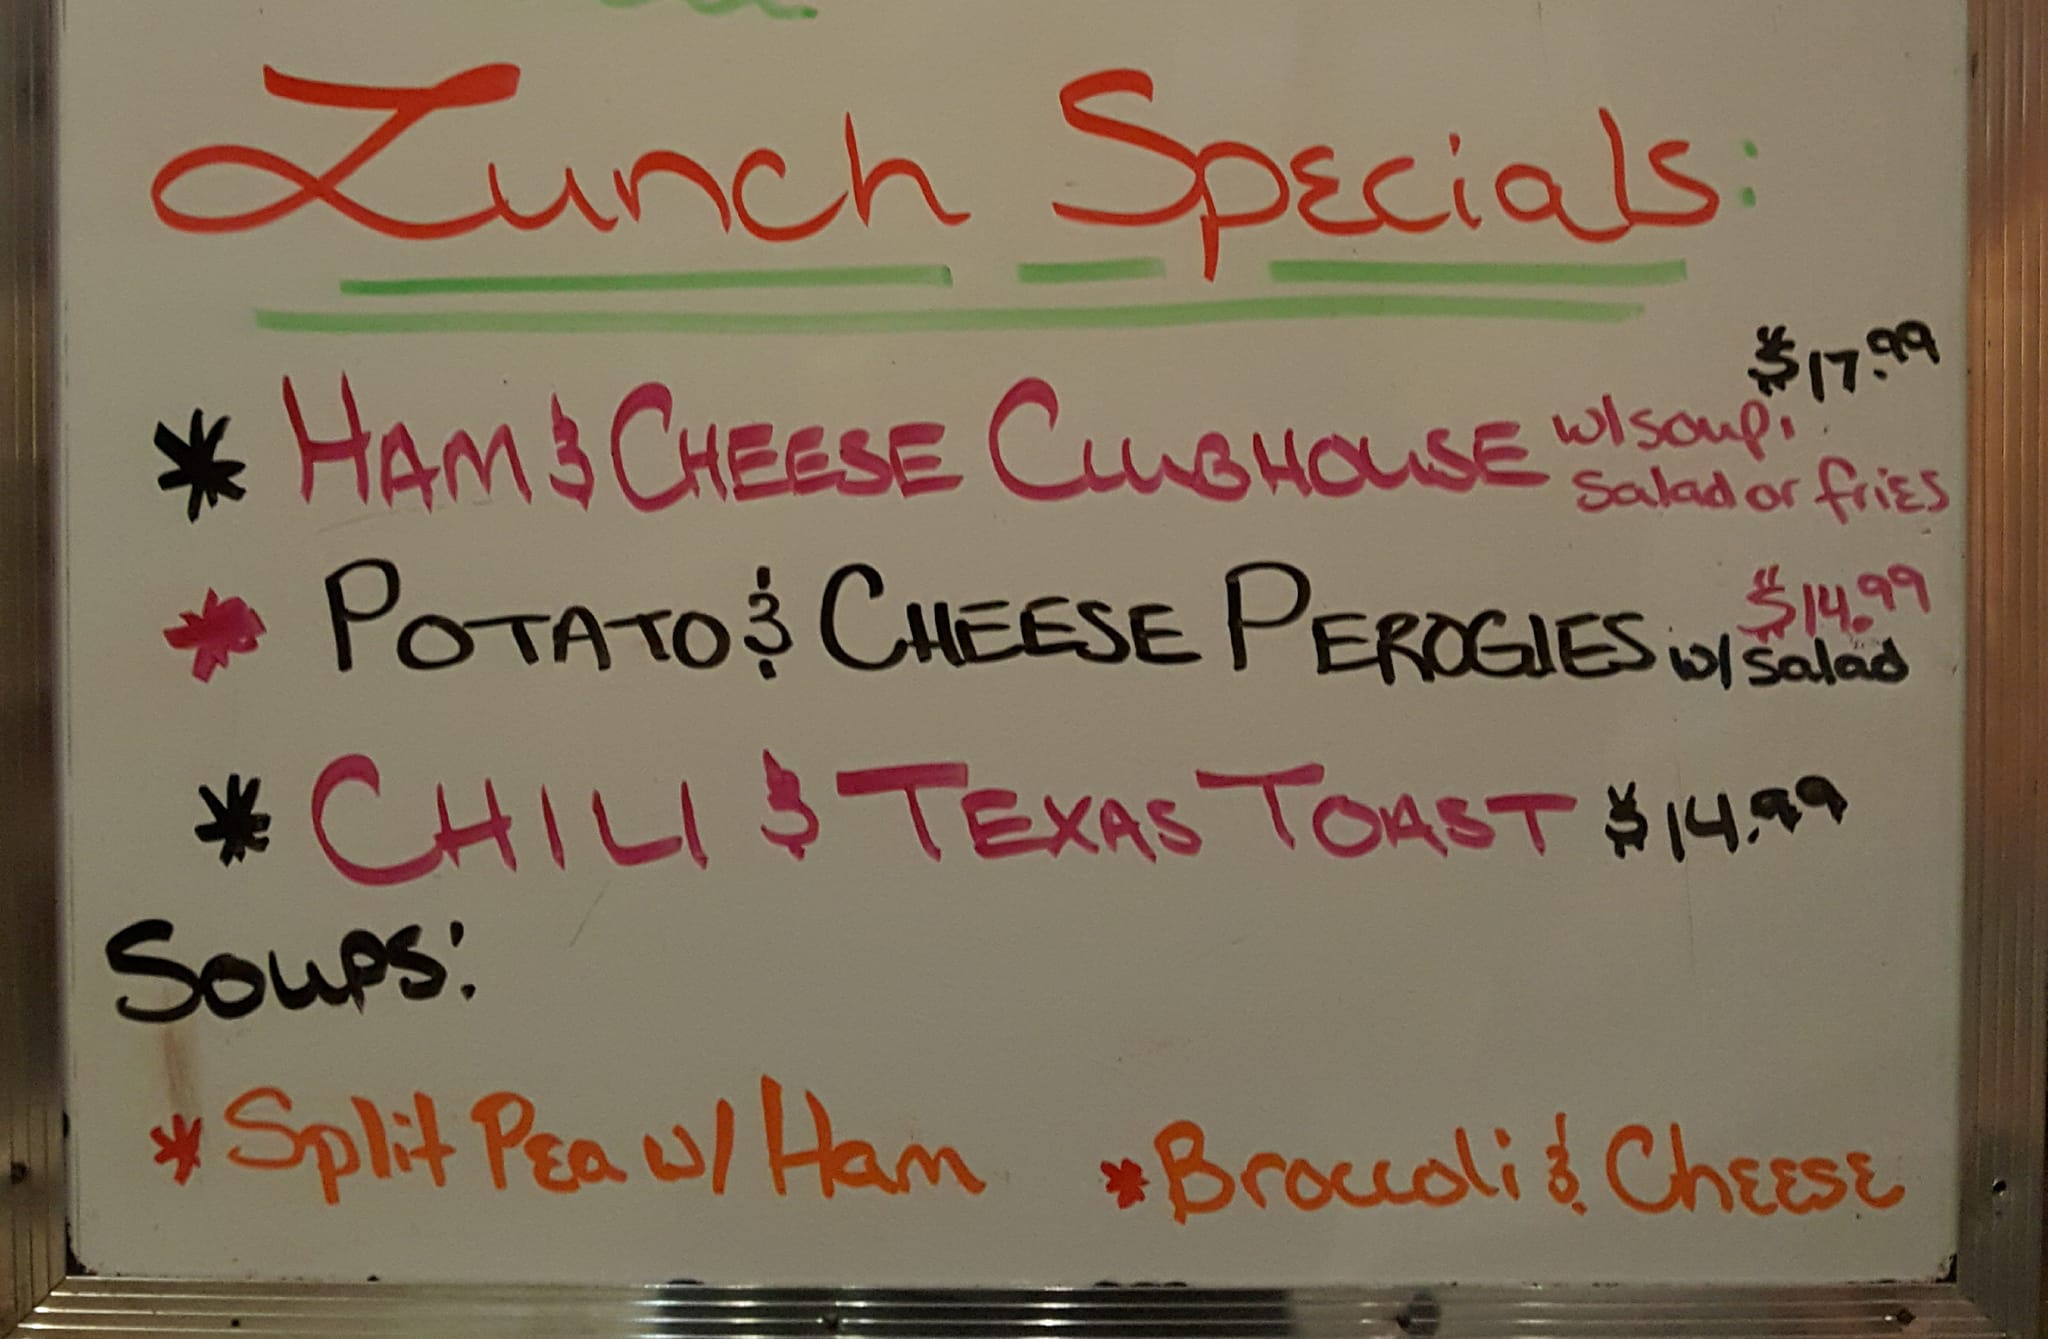 Lunch Specials:
$17.99
* HAM & CHEESE CLUBHOUSE w/soup,
salad or fries
$14.99
* POTATO & CHEESE PEROGIES w/ salad
* CHILI & TEXAS TOAST $14.99
SOUPS:
* Split Pea w/ Ham * Broccoli & Cheese